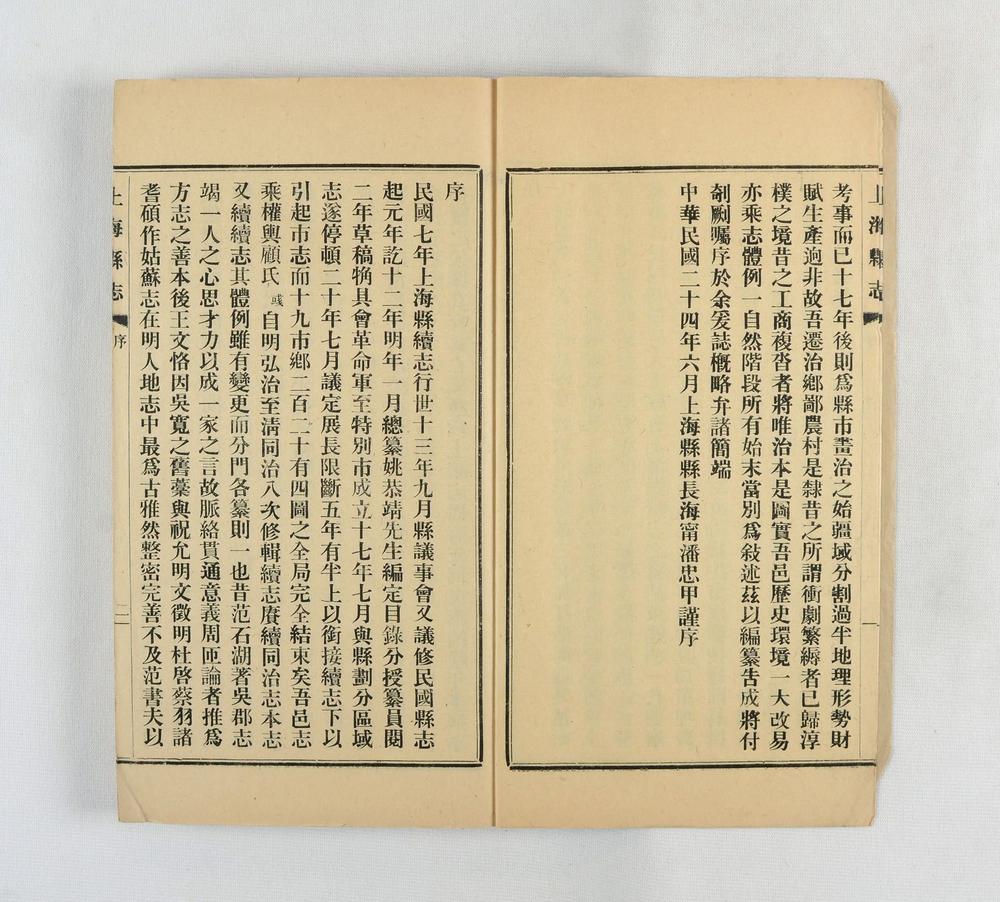 上海縣志
考事而已十七年後則爲縣市畫治之始疆域分割過半地理形勢財
賦生產逈非故吾遷治鄉鄙農村是隸昔之所謂衝劇繁縟者已歸淳
樸之境昔之工商複沓者將唯治本是圖實吾邑歷史環境一大改易
亦乘志體例一自然階段所有始末當別爲敍述茲以編纂告成將付
剞劂囑序於余爰誌概略弁諸簡端
中華民國二十四年六月上海縣縣長海甯潘忠甲謹序
序
民國七年上海縣續志行世十三年九月縣議事會又議修民國縣志
起元年訖十二年明年一月總纂姚恭靖先生編定目錄分授纂員閱
二年草稿觕具會革命軍至特別市成立十七年七月與縣劃分區域
志遂停頓二十年七月議定展長限斷五年有半上以銜接續志下以
引起市志而十九市鄉二百二十有四圖之全局完全結束矣吾邑志
乘權輿顧氏彧自明弘治至清同治八次修輯續志賡續同治志本志
又續續志其體例雖有變更而分門各纂則一也昔范石湖著吳郡志
竭一人之心思才力以成一家之言故脈絡貫通意義周匝論者推爲
方志之善本後王文恪因吳寬之舊藁與祝允明文徵明杜啓蔡羽諸
耆碩作姑蘇志在明人地志中最爲古雅然整密完善不及范書夫以
上海縣志
序
二